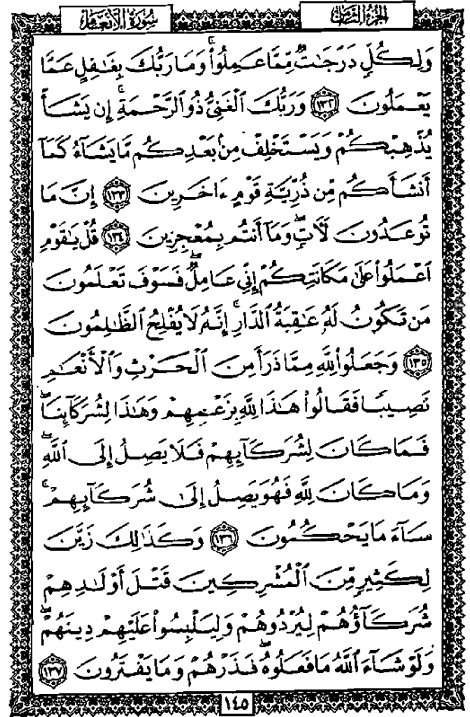 الجزء الثامن سورة الأنعام
وَلِكُلٍّ دَرَجَٰتٌ مِّمَّا عَمِلُوا۟ وَمَا رَبُّكَ بِغَٰفِلٍ عَمَّا
يَعْمَلُونَ ١٣٢ وَرَبُّكَ ٱلْغَنِىُّ ذُو ٱلرَّحْمَةِ إِن يَشَأْ
يُذْهِبْكُمْ وَيَسْتَخْلِفْ مِنۢ بَعْدِكُم مَّا يَشَآءُ كَمَآ
أَنشَأَكُم مِّن ذُرِّيَّةِ قَوْمٍ ءَاخَرِينَ ١٣٣ إِنَّ مَا
تُوعَدُونَ لَءَاتٍ وَمَآ أَنتُم بِمُعْجِزِينَ ١٣٤ قُلْ يَٰقَوْمِ
ٱعْمَلُوا۟ عَلَىٰ مَكَانَتِكُمْ إِنِّى عَامِلٌ فَسَوْفَ تَعْلَمُونَ
مَن تَكُونُ لَهُۥ عَٰقِبَةُ ٱلدَّارِ إِنَّهُۥ لَا يُفْلِحُ ٱلظَّٰلِمُونَ
١٣٥ وَجَعَلُوا۟ لِلَّهِ مِمَّا ذَرَأَ مِنَ ٱلْحَرْثِ وَٱلْأَنْعَٰمِ
نَصِيبًا فَقَالُوا۟ هَٰذَا لِلَّهِ بِزَعْمِهِمْ وَهَٰذَا لِشُرَكَآئِنَا
فَمَا كَانَ لِشُرَكَآئِهِمْ فَلَا يَصِلُ إِلَى ٱللَّهِ
وَمَا كَانَ لِلَّهِ فَهُوَ يَصِلُ إِلَىٰ شُرَكَآئِهِمْ
سَآءَ مَا يَحْكُمُونَ ١٣٦ وَكَذَٰلِكَ زَيَّنَ
لِكَثِيرٍ مِّنَ ٱلْمُشْرِكِينَ قَتْلَ أَوْلَٰدِهِمْ
شُرَكَآؤُهُمْ لِيُرْدُوهُمْ وَلِيَلْبِسُوا۟ عَلَيْهِمْ دِينَهُمْ
وَلَوْ شَآءَ ٱللَّهُ مَا فَعَلُوهُ فَذَرْهُمْ وَمَا يَفْتَرُونَ ١٣٧
١٤٥